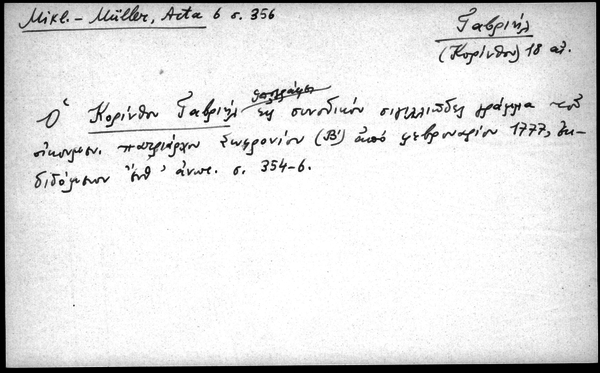 Mikl.-Müller, Acta 6 σ. 356
Γαβριήλ
(Κορίνθου) 18 αἰ.
Ὁ Κορίνθου Γαβριήλ ὑπογράφει εἰς συνοδικόν σιγιλλιῶδες γράμμα τοῦ
οἰκουμεν. πατριάρχου Σωφρονίου (Β') ἀπό φεβρουαρίου 1777, ἐκ-
διδόμενον ἐνθ' ἀνωτ. σ. 354-6.